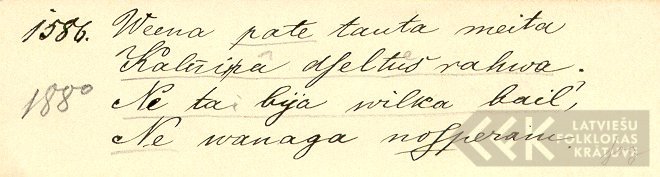 1586. Weena pate tauta meita
Kalniņā dſeltus rahwa.
1880 Ne tai bija wilka bail',
Ne wanaga noſperam.
LATVIEŠU
FOLKLORAS
KRĀTUVE